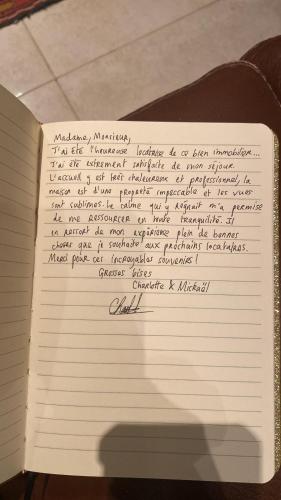 Madame, Monsieur,
J'ai été l'heureuse locataire de ce bien immobilier...
J'ai été extrement satisfaite de mon séjour.
L'accueil y est très chaleureux et professionnel, la
maison est d'une propreté impeccable et les vues
sont sublimes. Le calme qui y régnait m'a permise
de me ressourcer en toute tranquilité. Il
en ressort de mon expérience plein de bonnes
choses que je souhaite aux prochains locataires.
Merci pour ces incroyables souvenirs !
Grosses bises
Charlotte & Mickaël